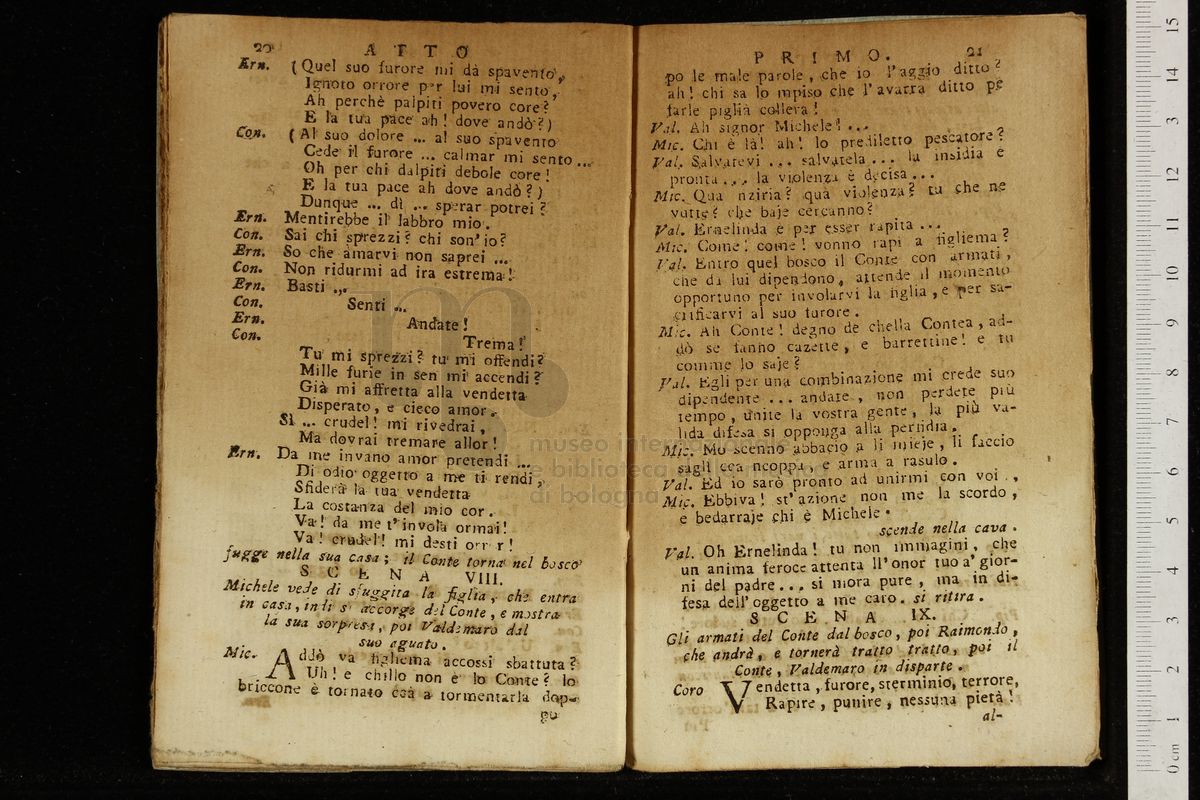 20 ATTO
Ern. (Quel suo furore mi dà spavento,
Ignoto orrore per lui mi sento,
Ah perchè palpiti povero core?
E la tua pace ah! dove andò?)
Con. (Al suo dolore ... al suo spavento
Cede il furore ... calmar mi sento ...
Oh per chi dalpiti debole core!
E la tua pace ah dove andò?)
Dunque ... dì ... sperar potrei?
Ern. Mentirebbe il labbro mio.
Con. Sai chi sprezzi? chi son' io?
Ern. So che amarvi non saprei ...
Con. Non ridurmi ad ira estrema!
Ern. Basti ...
Con. Senti ...
Ern. Andate!
Con. Trema!
Tu mi sprezzi? tu mi offendi?
Mille furie in sen mi accendi?
Già mi affretta alla vendetta
Disperato, e cieco amor.
Sì ... crudel! mi rivedrai,
Ma dovrai tremare allor!
Ern. Da me invano amor pretendi ...
Di odio oggetto a me ti rendi,
Sfiderà la tua vendetta
La costanza del mio cor.
Va! da me t'invola ormai!
Va! crudel! mi desti orror!
fugge nella sua casa; il Conte torna nel bosco
SCENA VIII.
Michele vede di sfuggita la figlia, che entra
in casa, indi s' accorge del Conte, e mostra
la sua sorpresa, poi Valdemaro dal
suo aguato.
Mic. Addò va figliema accossi sbattuta?
Uh! e chillo non è lo Conte? lo
briccone è tornato ccà a tormentarla dop-
po
PRIMO. 21
po le male parole, che io l'aggio ditto?
ah! chi sa lo mpiso che l'avarra ditto pe
farle piglià collera!
Val. Ah signor Michele! ...
Mic. Chi è là! ah! lo prediletto pescatore?
Val. Salvatevi ... salvatela ... la insidia è
pronta ... la violenza è decisa ...
Mic. Qua nziria? quà violenza? tu che ne
vutte? che baje cercanno?
Val. Ernelinda è per esser rapita ...
Mic. Come! come! vonno rapì a figliema?
Val. Entro quel bosco il Conte con armati,
che da lui dipendono, attende il momento
opportuno per involarvi la figlia, e per sa-
crificarvi al suo furore.
Mic. Ah Conte! degno de chella Contea, ad-
dò se fanno cazette, e barrettine! e tu
comme lo saje?
Val. Egli per una combinazione mi crede suo
dipendente ... andate, non perdete più
tempo, unite la vostra gente, la più va-
lida difesa si opponga alla perfidia.
Mic. Mo scenno abbacio a li mieje, li faccio
saglì cca ncoppa, e arma a rasulo.
Val. Ed io sarò pronto ad unirmi con voi.
Mic. Ebbiva! st'azione non me la scordo,
e bedarraje chi è Michele.
scende nella cava.
Val. Oh Ernelinda! tu non immagini, che
un anima feroce attenta ll'onor tuo a' gior-
ni del padre ... si mora pure, ma in di-
fesa dell'oggetto a me caro. si ritira.
SCENA IX.
Gli armati del Conte dal bosco, poi Raimondo,
che andrà, e tornerà tratto tratto, poi il
Conte, Valdemaro in disparte.
Coro Vendetta, furore, sterminio, terrore,
Rapire, punire, nessuna pietà!
al-
museo internazionale
e biblioteca della musica
di bologna